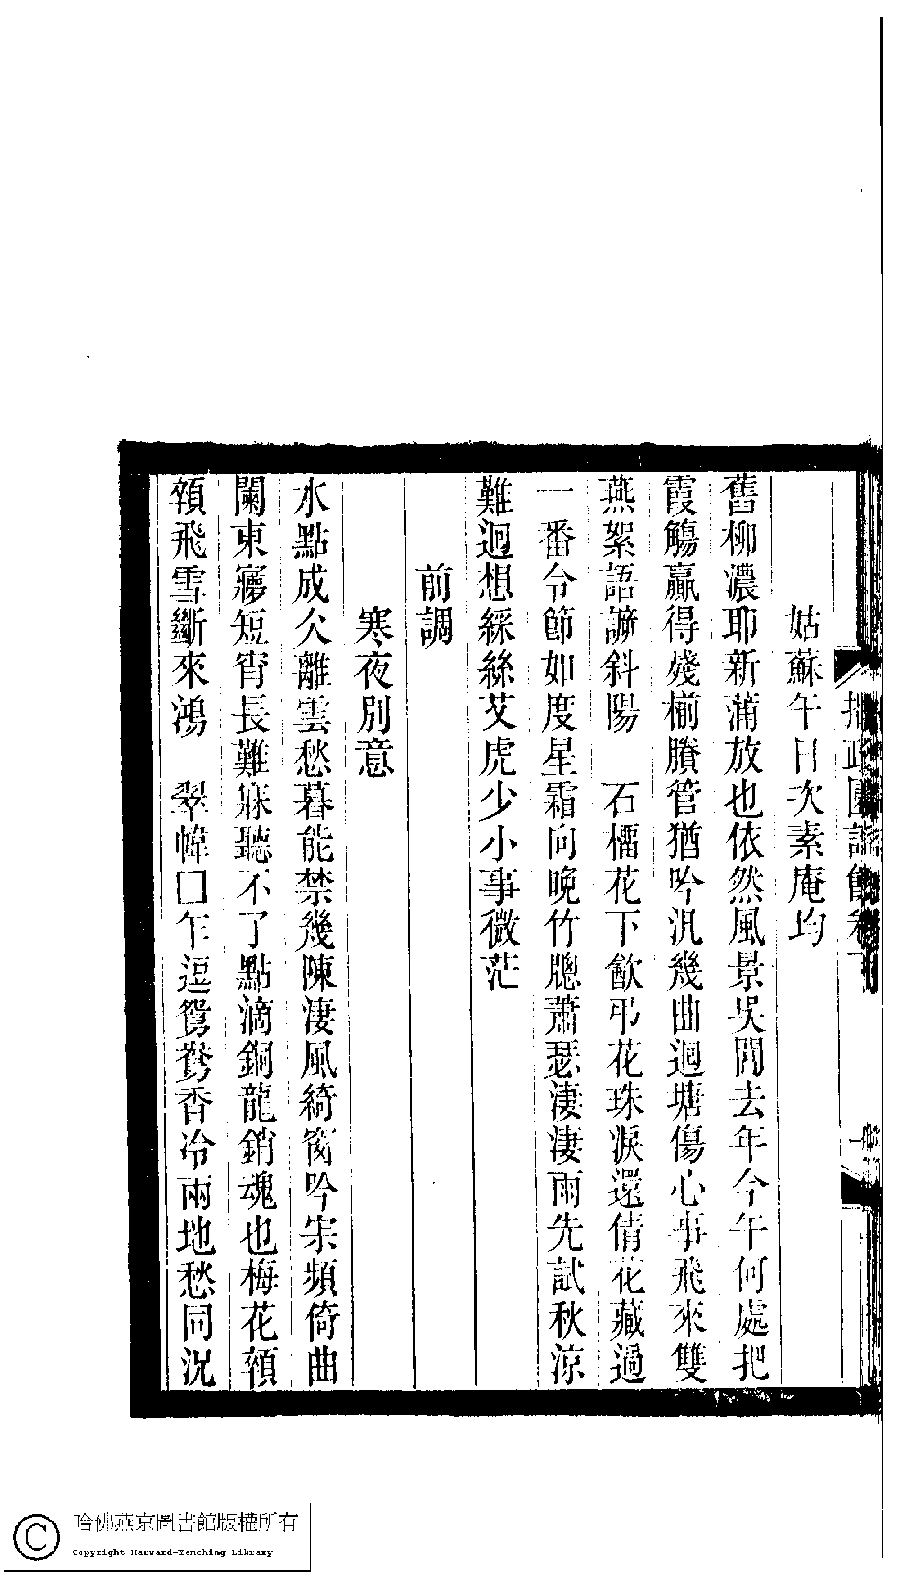 拙政園詩餘卷下
姑蘇午日次素庵均
舊柳濃耶新蒲放也依然風景吳閶去年今午何處把
霞觴贏得殘榴賸管猶吟汎幾曲迴塘傷心事飛來雙
燕絮語謔斜陽 石橊花下飲弔花珠淚還倩花藏過
一番令節如度星霜向晚竹牕蕭瑟淒淒雨先試秋涼
難迴想綵絲艾虎少小事微茫
前調
寒夜別意
水點成久離雲愁暮能禁幾陳淒風綺窗吟宋頻倚曲
闌東寢短宵長難寐聽不了點滴銅龍銷魂也梅花領
領飛雪斷來鴻 翠幃囗乍逗鴛鴦香冷兩地愁同況
哈佛燕京圖書館版權所有
Copyright Harvard-Yenching Library